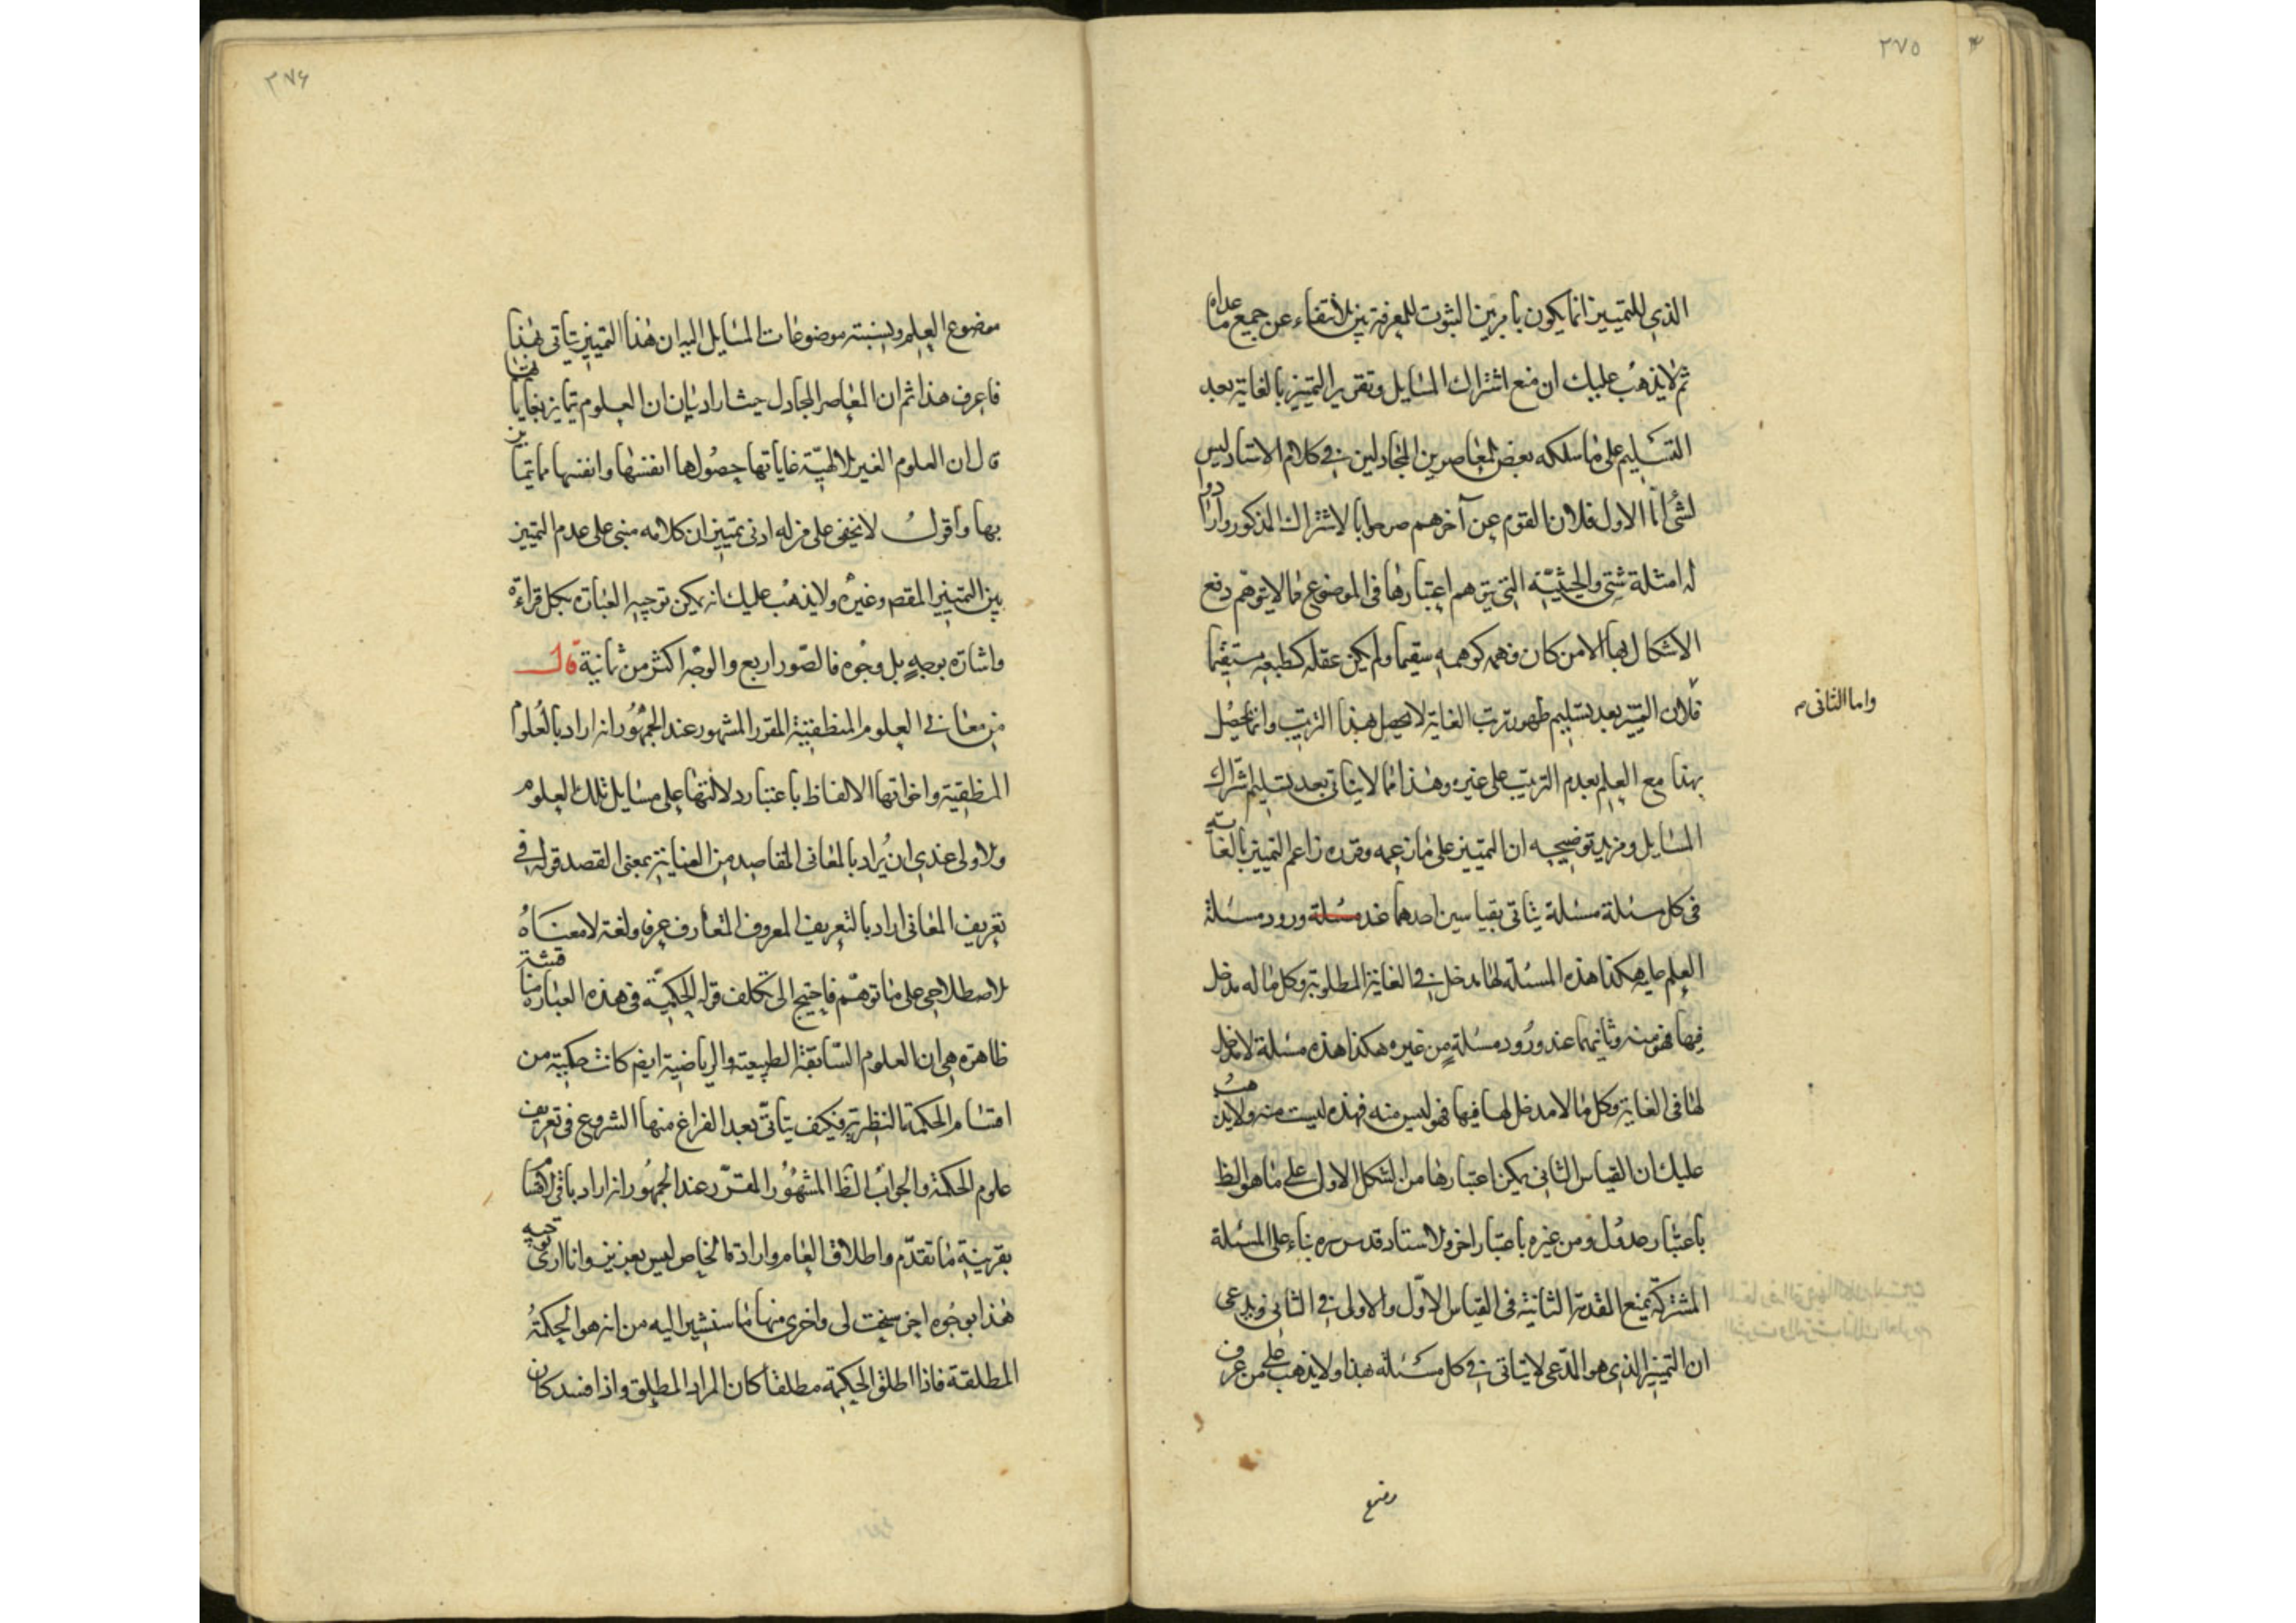 ٢٧٥
الذي للتمييز انما يكون بامرين الثبوت للمعرفة بين الانتفاء عن جميع ما عداه
ثم لا يذهب عليك ان منع اشتراك المسايل وتقرير التميز بالغاية بعد
التسليم على ما سلكه بعض المعاصرين المجادلين في كلام الاستاد ليس
لشئ اما الاول فلان القوم عن آخرهم صرحوا بالاشتراك المذكور واوردوا
له امثلة شتى والحيثية التي يتوهم اعتبارها في الموضوع مما لا يتوهم دفع
الاشكال بها الا من كان فهمه كوهمه سقيما ولم يكن عقله كطبعه مستقيما
واما الثاني م
فلان التميز بعد تسليم ظهور ترتب الغاية لا يحصل بهذا الترتيب وانما يحصل
بهذا مع العلم بعدم الترتيب على غيره وهذا مما لا يتاتى بعد تسليم اشتراك
المسايل ومزيد توضيحه ان التمييز على ما زعمه وقرره زاعم التمييز بالغاية
في كل مسئلة مسئلة يتاتى بقياسين احدهما عند مسئلة ورود مسئلة
العلم عليه هكذا هذه المسئلة لها مدخل في الغاية المطلوبة وكل ما له مدخل
فيها فهو منه وثانيهما عند ورود مسئلة من غيره هكذا هذه مسئلة لا مدخل
لها في الغاية وكل ما لا مدخل لها فيها فهو ليس منه فهذه ليست منه ولا يذهب
عليك ان القياس الثاني يمكن اعتبارها من الشكل الاول على ما هو الظ
باعتبار عدول ومن غيره باعتبار اخر والاستاد قدس سره بناء على المسئلة
المشتركة يمنع المقدمة الثانية في القياس الاول والاولى في الثاني ويدعي
ان التميز الذي هو المدعى لا يتاتى في كل مسئلة بهذا ولا يذهب على من عرف
موضوع
٢٧۶
موضوع العلم وبنسبته موضوعات المسايل اليه ان هذا التميز يتاتى بهذا
فاعرف هذا ثم ان المعاصر المجادل حيث اراد بيان ان العلوم يتمايز بغاياتها
قال ان العلوم الغير الالهية غاياتها حصولها انفسها وانفسها مما يتمايز
بها واقول لا يخفى على من له ادنى تمييز ان كلامه مبنى على عدم التمييز
بين التمييز المقصـ وغيره ولا يذهب عليك انه يمكن توجيه العبارة بكل قراءة
واشارة بوجه بل وجوه فالصور اربع والوجه اكثر من ثمانية قال
من معان في العلوم المنطقية المقرر المشهور عند الجمهور انه اراد بالعلوم
المنطقية واخواتها الالفاظ باعتبار دلالتها على مسايل تلك العلوم
والاولى عندي ان يراد بالمعانى المقاصد من العناية بمعنى القصد قوله في
تعريف المعانى اراد بالتعريف المعروف المتعارف عرفا ولغة لا معناه
الاصطلاحي على ما توهم فاحتيج الى تكلف قوله الحكمية في هذه العبارة مناقشة
ظاهرة هي ان العلوم السابقة الطبيعية والرياضية ايضا كانت حكمية من
اقسام الحكمة النظرية فكيف يتاتى بعد الفراغ منها الشروع في تعريف
علوم الحكمة والجواب الظ المشهور المقرر عند الجمهور انه اراد باقي الاقسام
بقرينة ما تقدم واطلاق العام وارادة الخاص ليس بعزيز وانا ارى توجيه
هذا بوجوه اخر سنحت لى واخرى منها ما سنشير اليه من انه هو الحكمة
المطلقة فاذا اطلق الحكمية مطلقا كان المراد المطلق واذا قيد كان